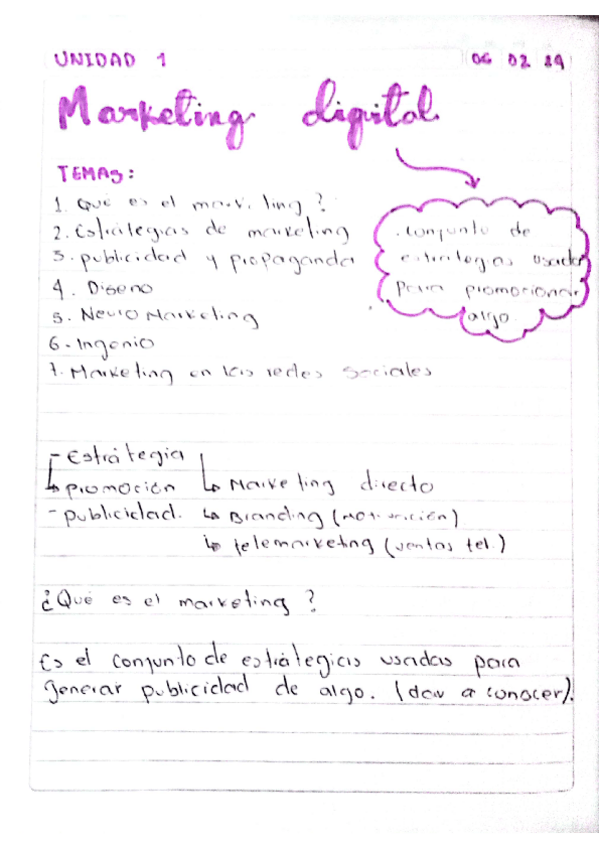 UNIDAD 1
06 02 29
Marketing digital
TEMAS:
1. Qué es el marketing?
2. Estrategias de marketing
3. publicidad y propaganda
4. Diseño
5. Neuro Marketing
6. Ingenio
7. Marketing en las redes sociales
. conjunto de
estrategias usadas
para promocionar
algo.
- Estrategia
↳ promoción
- publicidad.
↳ Marketing directo
↳ Branding (Motivación)
↳ telemarketing (ventas tel.)
¿Qué es el marketing?
Es el conjunto de estrategias usadas para
generar publicidad de algo. (dar a conocer).